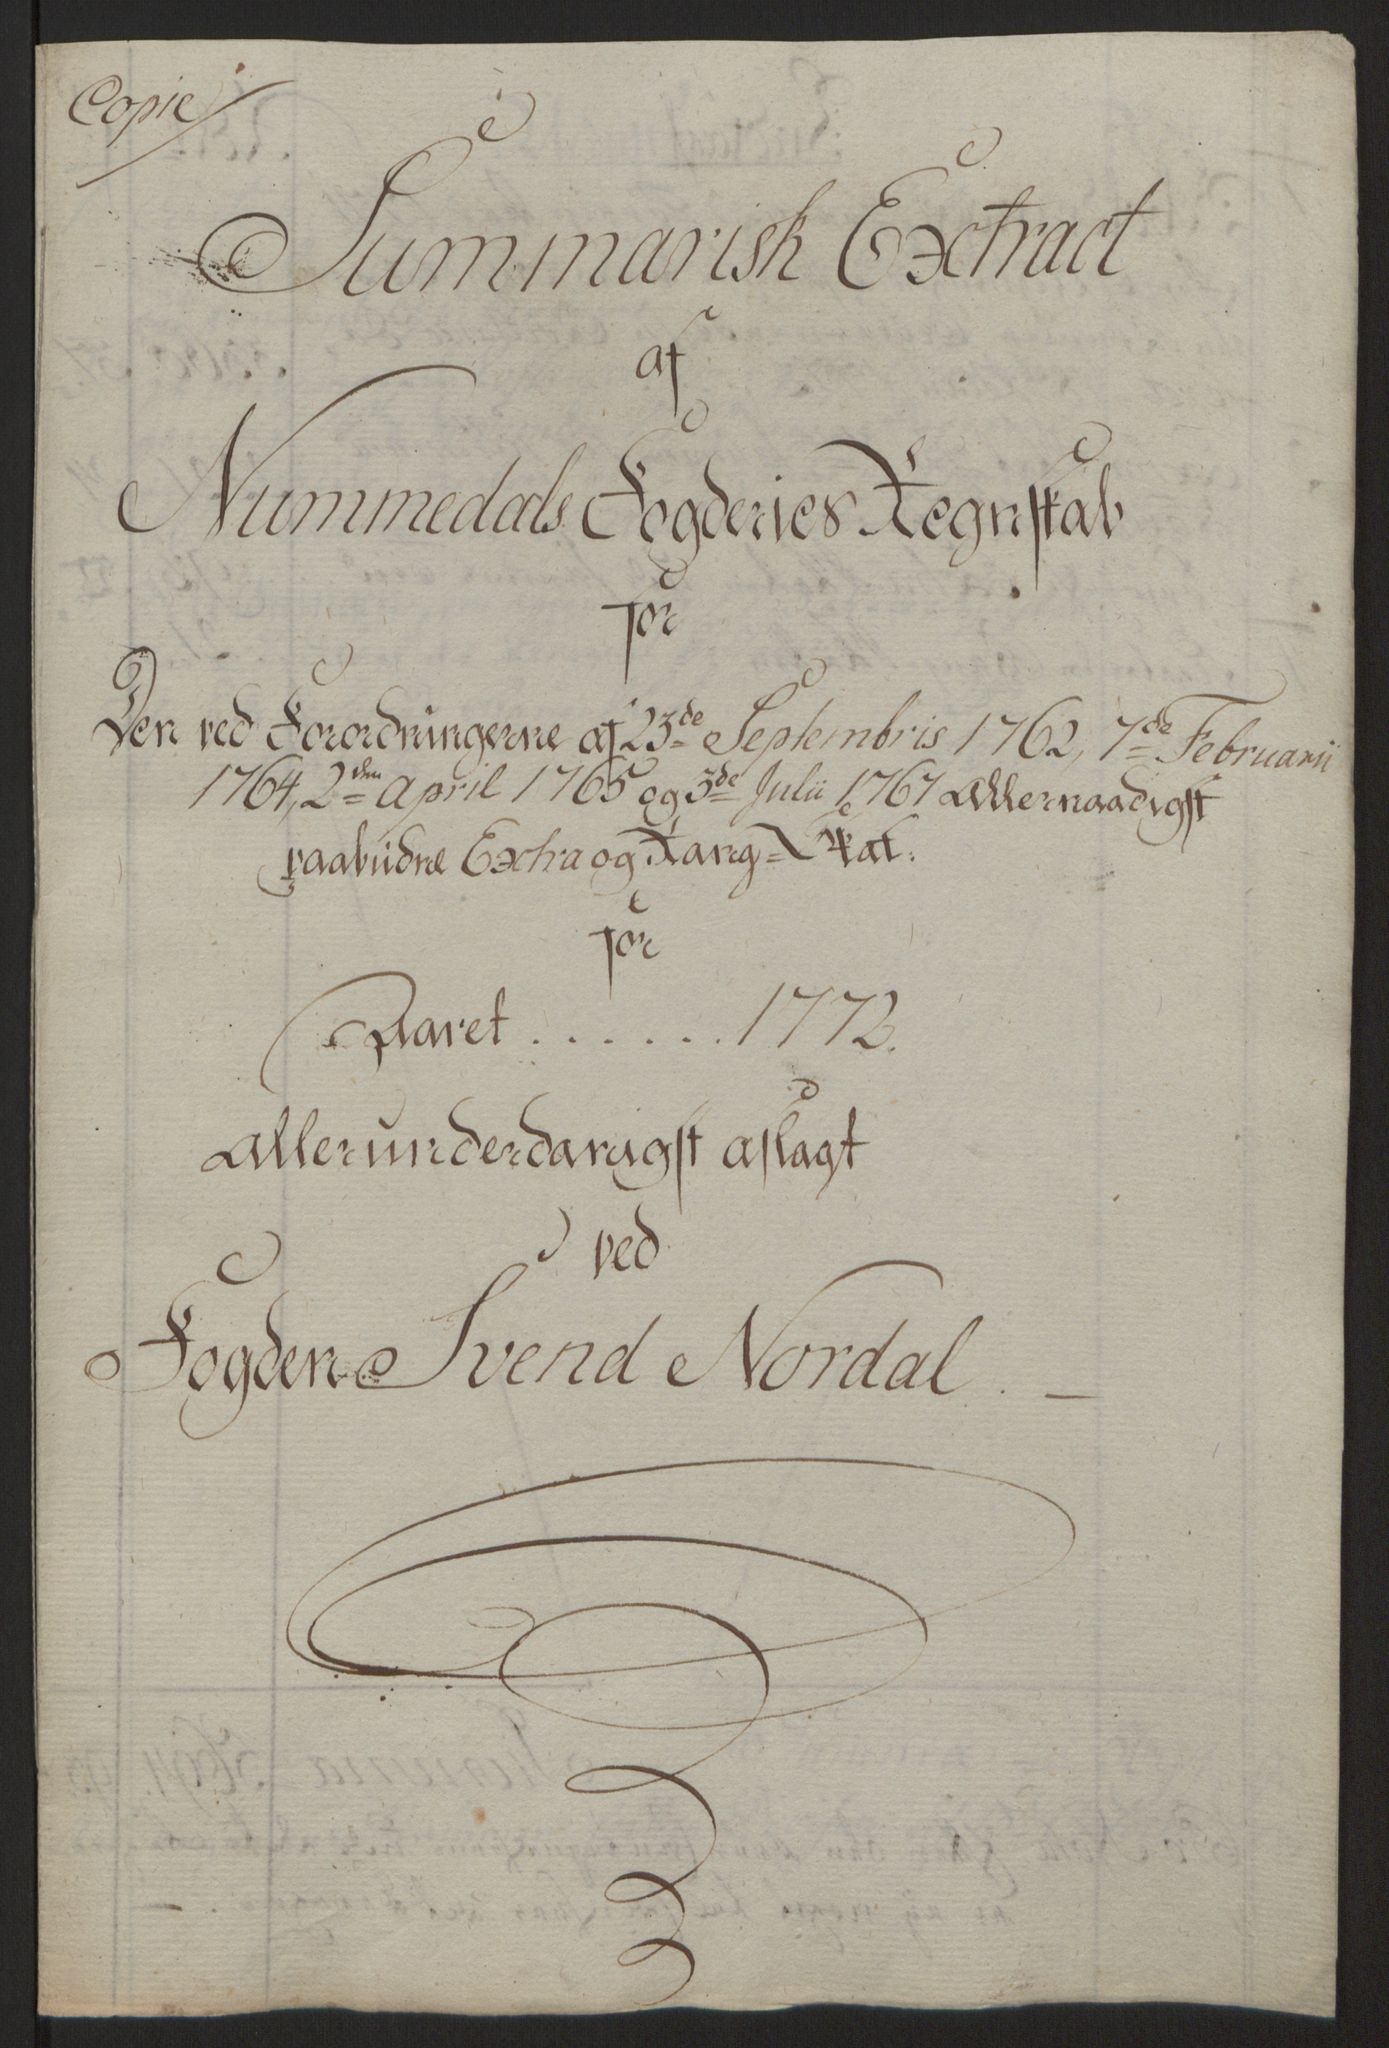 Copie
Summarisk Extract
af
Nummedals Fogderies Regnskab
for
Den ved Forordningerne af 23de Septembris 1762, 7de Februarii
1764, 2den April 1765 og 3de Julii 1767 Allernaadigst
paabudne Extra og Rang-Skat.
for
Aaret . . . . . . 1772.
Allerunderdanigst aflagt
ved
Fogden Svend Nordal. —